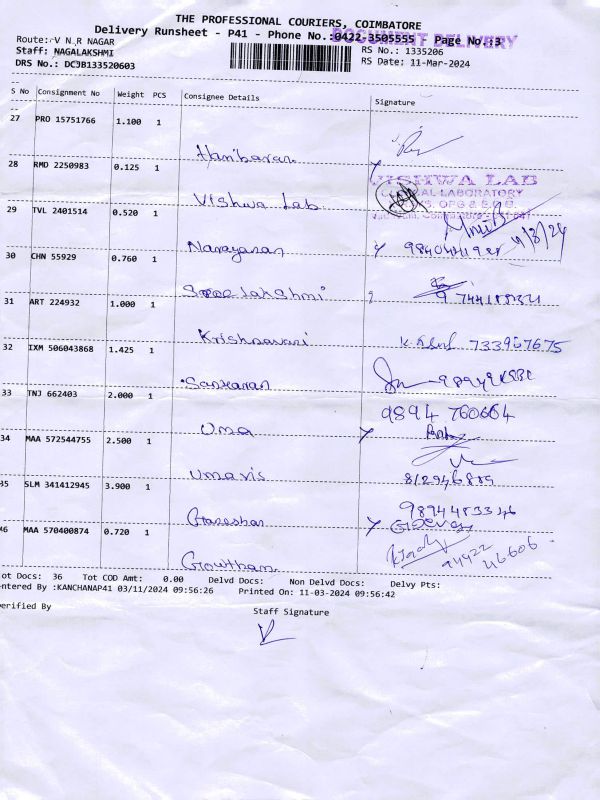 THE PROFESSIONAL COURIERS, COIMBATORE
Delivery Runsheet - P41 - Phone No.:0422-3505555 - Page No.:3
DOCUMENT DELIVERY
Route: V N R NAGAR
RS No.: 1335206
Staff: NAGALAKSHMI
RS Date: 11-Mar-2024
DRS No.: DCJB133520603
S No Consignment No Weight PCS Consignee Details Signature
27 PRO 15751766 1.100 1
Hariharan
28 RMD 2250983 0.125 1
VISHWA LAB
LABORATORY
Vishwa Lab
29 TVL 2401514 0.520 1
11/3/24
Narayanan
30 CHN 55929 0.760 1
Sree lakshmi
31 ART 224932 1.000 1
Krishnaveni 733967675
32 IXM 506043868 1.425 1
Sankaran
33 TNJ 662403 2.000 1
9894 760664
Uma
34 MAA 572544755 2.500 1
Umavis
35 SLM 341412945 3.900 1
Ganeshan
46 MAA 570400874 0.720 1
94422
46606
Gowtham
ot Docs: 36 Tot COD Amt: 0.00 Delvd Docs: Non Delvd Docs: Delvy Pts:
ntered By :KANCHANAP41 03/11/2024 09:56:26 Printed On: 11-03-2024 09:56:42
erified By
Staff Signature